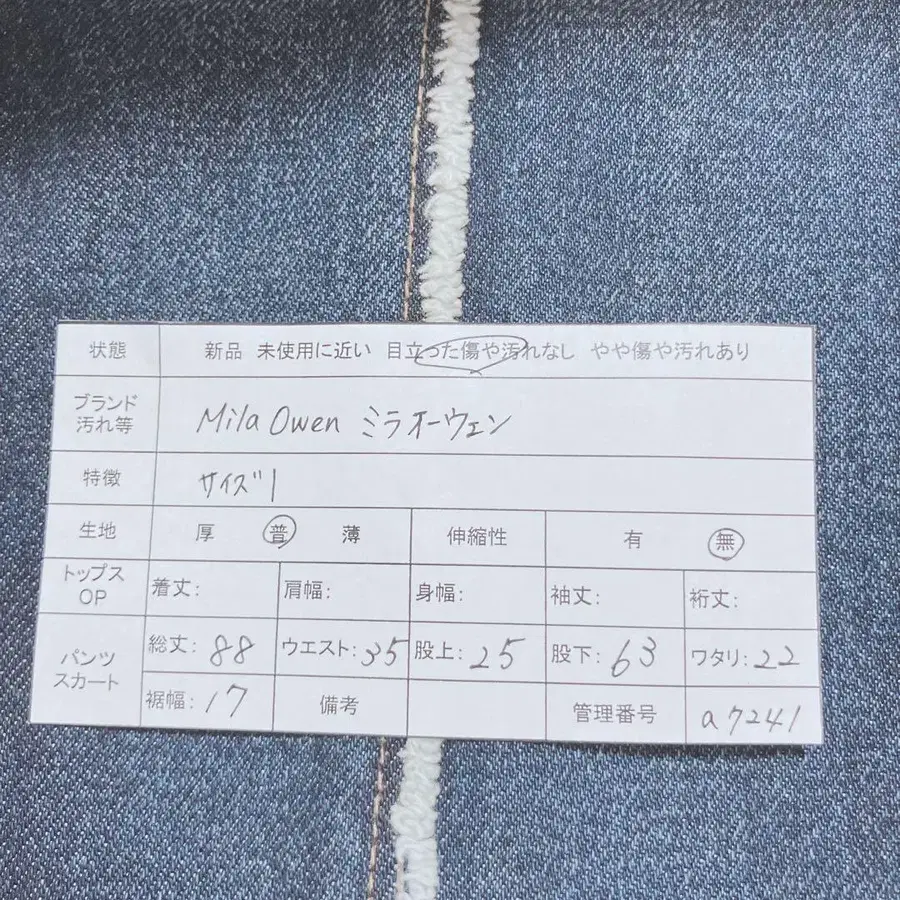 状態 新品 未使用に近い 目立った傷や汚れなし やや傷や汚れあり
ブランド
汚れ等 Mila Owen ミラオーウェン
特徴 サイズ1
生地 厚 普 薄 伸縮性 有 無
トップス
OP 着丈: 肩幅: 身幅: 袖丈: 裄丈:
パンツ
スカート 総丈: 88 ウエスト: 35 股上: 25 股下: 63 ワタリ: 22
裾幅: 17 備考 管理番号 a7241